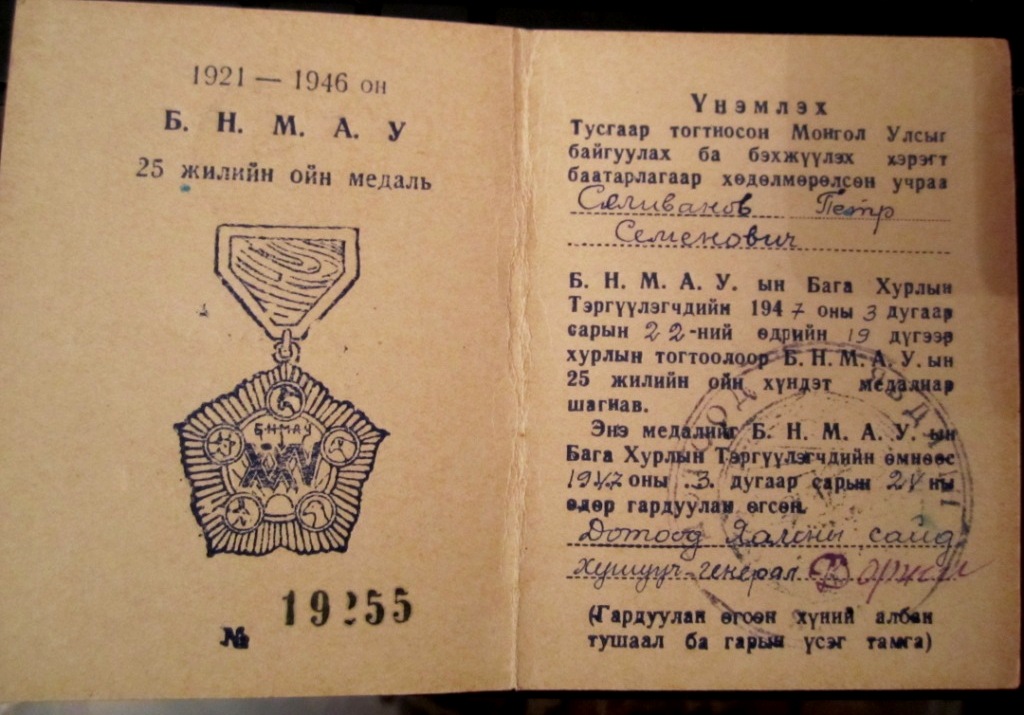 1921 — 1946 он
Б. Н. М. А. У
25 жилийн ойн медаль
БНМАУ
XXV
№ 19255
Үнэмлэх
Тусгаар тогтносон Монгол Улсыг
байгуулах ба бэхжүүлэх хэрэгт
баатарлагаар хөдөлмөрөлсөн учраа
Селиванов Петр
Семенович
Б. Н. М. А. У. ын Бага Хурлын
Тэргүүлэгчдийн 1947 оны 3 дугаар
сарын 22-ний өдрийн 19 дүгээр
хурлын тогтоолоор Б. Н. М. А. У. ын
25 жилийн ойн хүндэт медалиар
шагнав.
Энэ медалийг Б. Н. М. А. У. ын
Бага Хурлын Тэргүүлэгчдийн өмнөөс
1947 оны 3. дугаар сарын 24 ны
өдөр гардуулан өгсөн.
Дотоод Яамны сайд
генерал
(Гардуулан өгсөн хүний албан
тушаал ба гарын үсэг тамга)